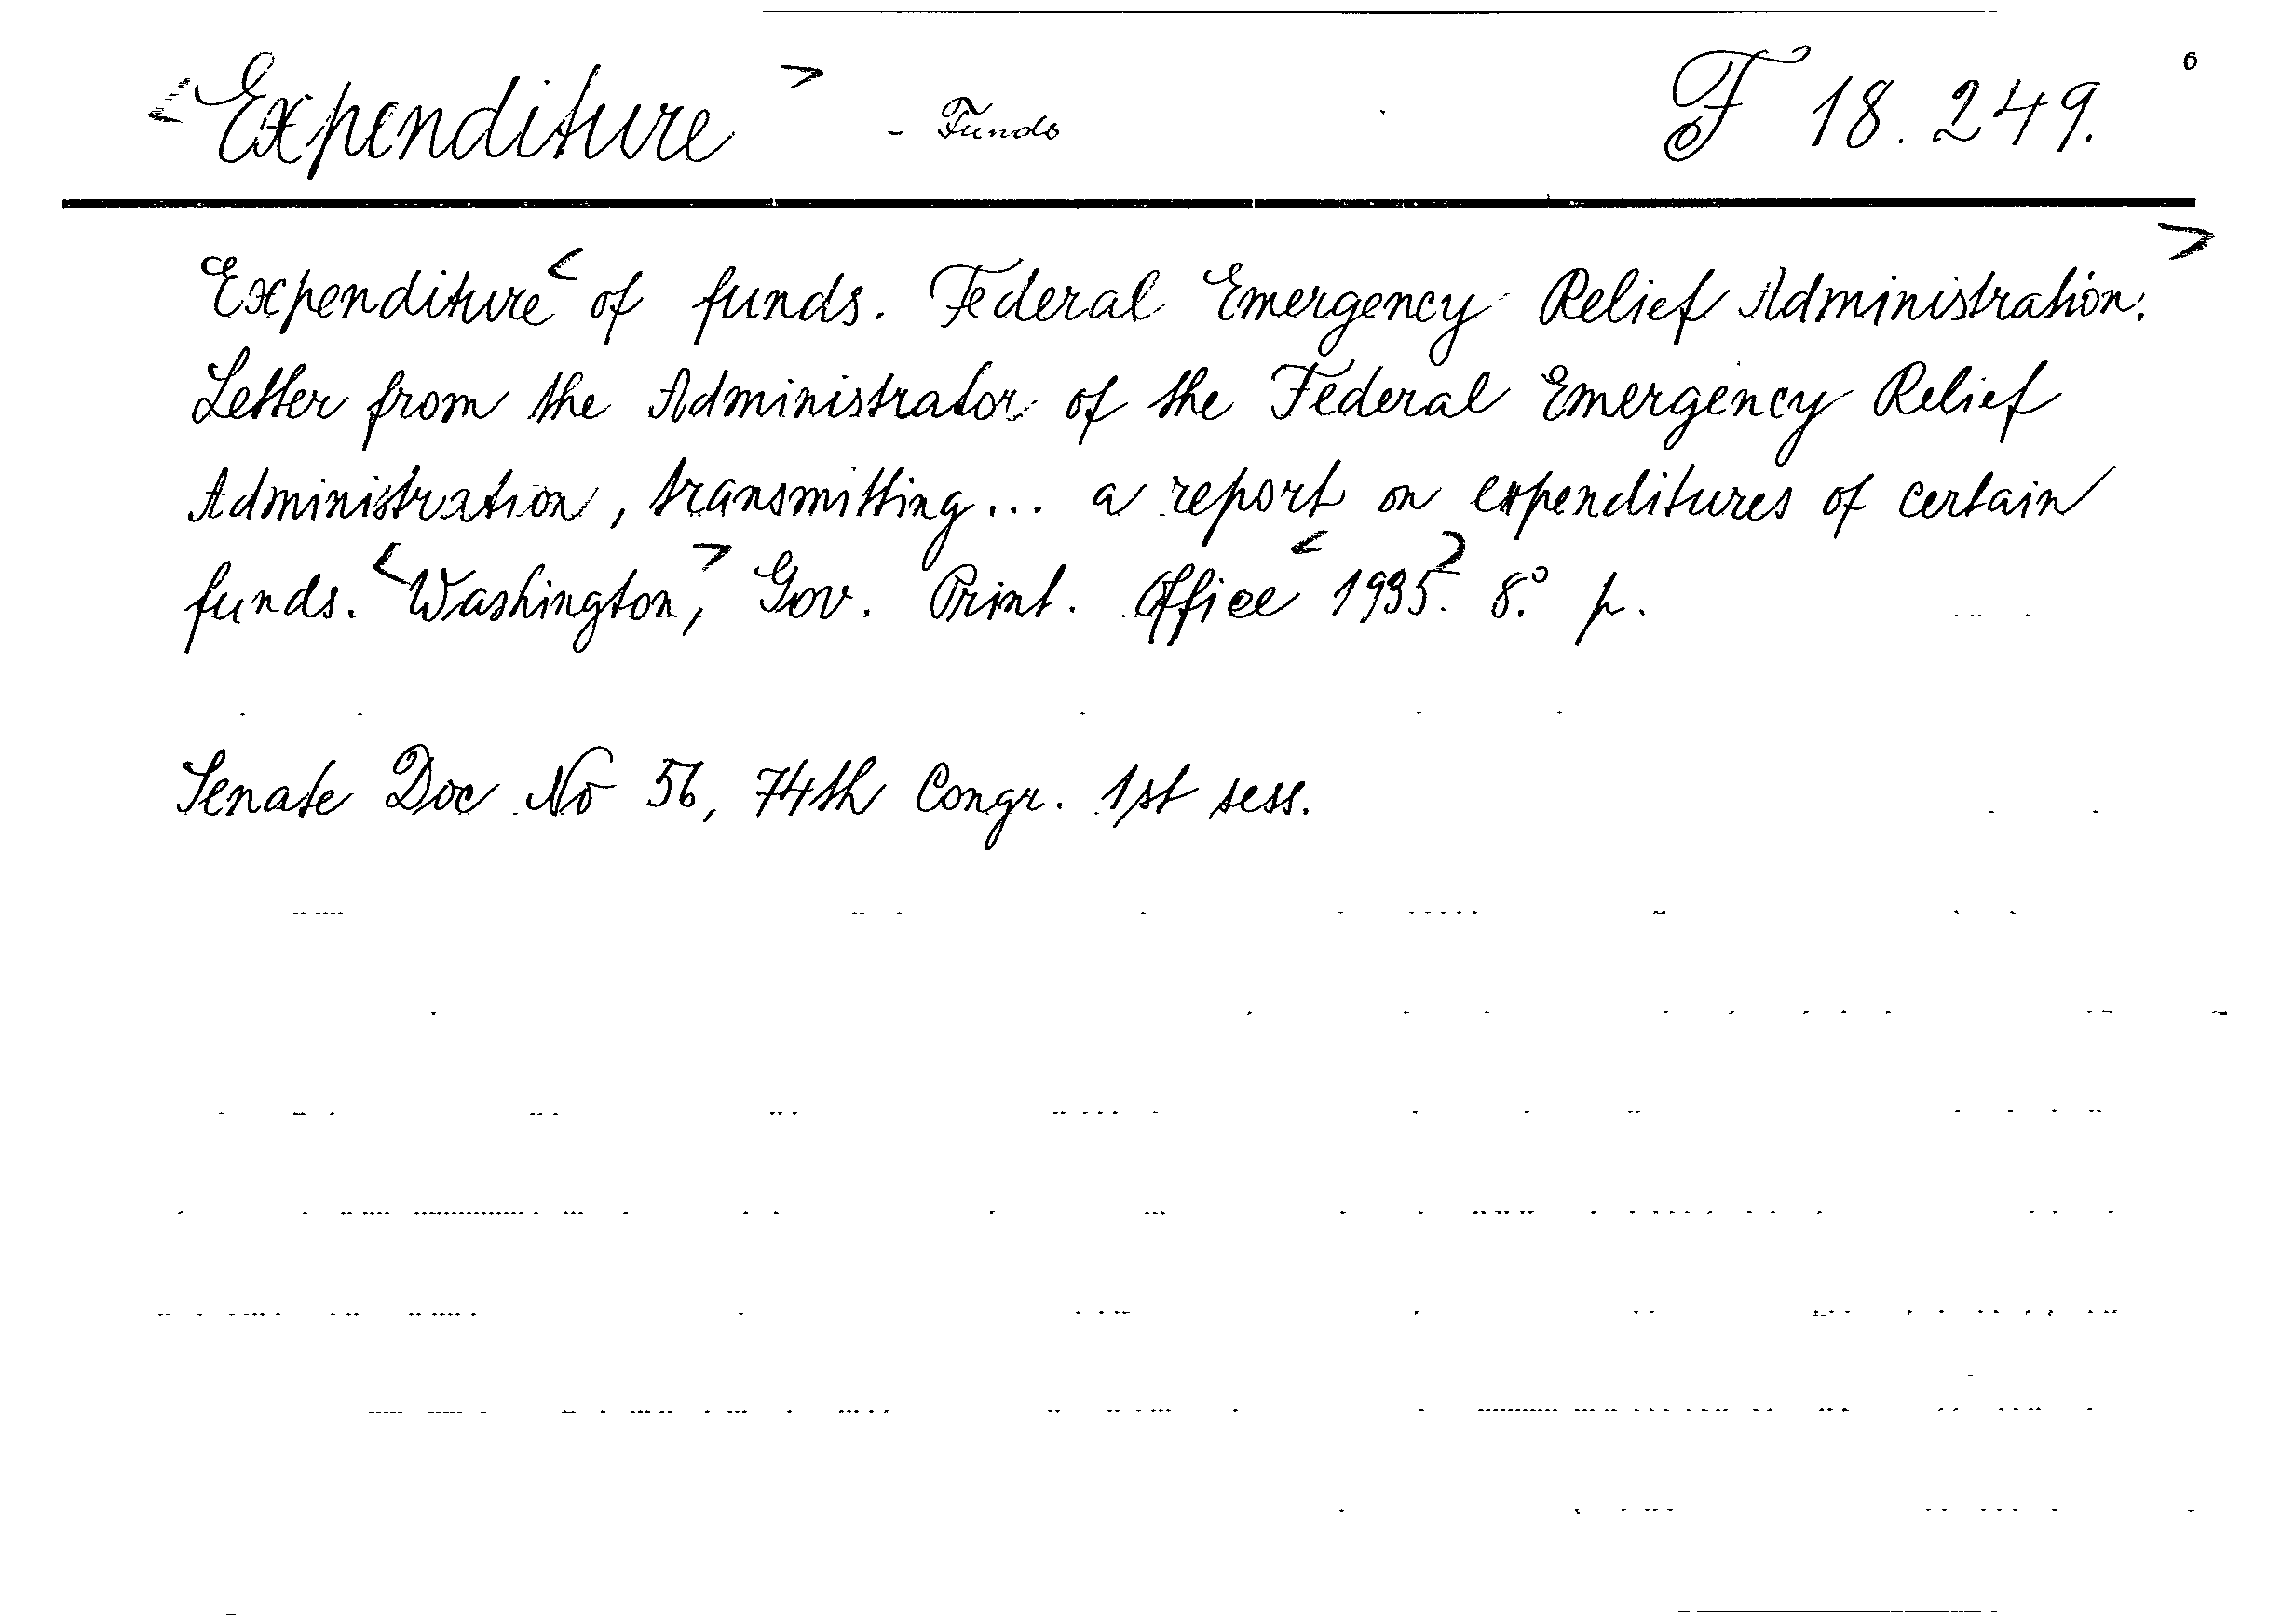 <Expenditure> - Funds F 18.249. 6
Expenditure< of funds. Federal Emergency Relief Administration.>
Letter from the Administrator of the Federal Emergency Relief
Administration, transmitting... a report on expenditures of certain
funds. <Washington,> Gov. Print. Office <1935.> 8.° p.
Senate Doc No 56, 74th Congr. 1st sess.